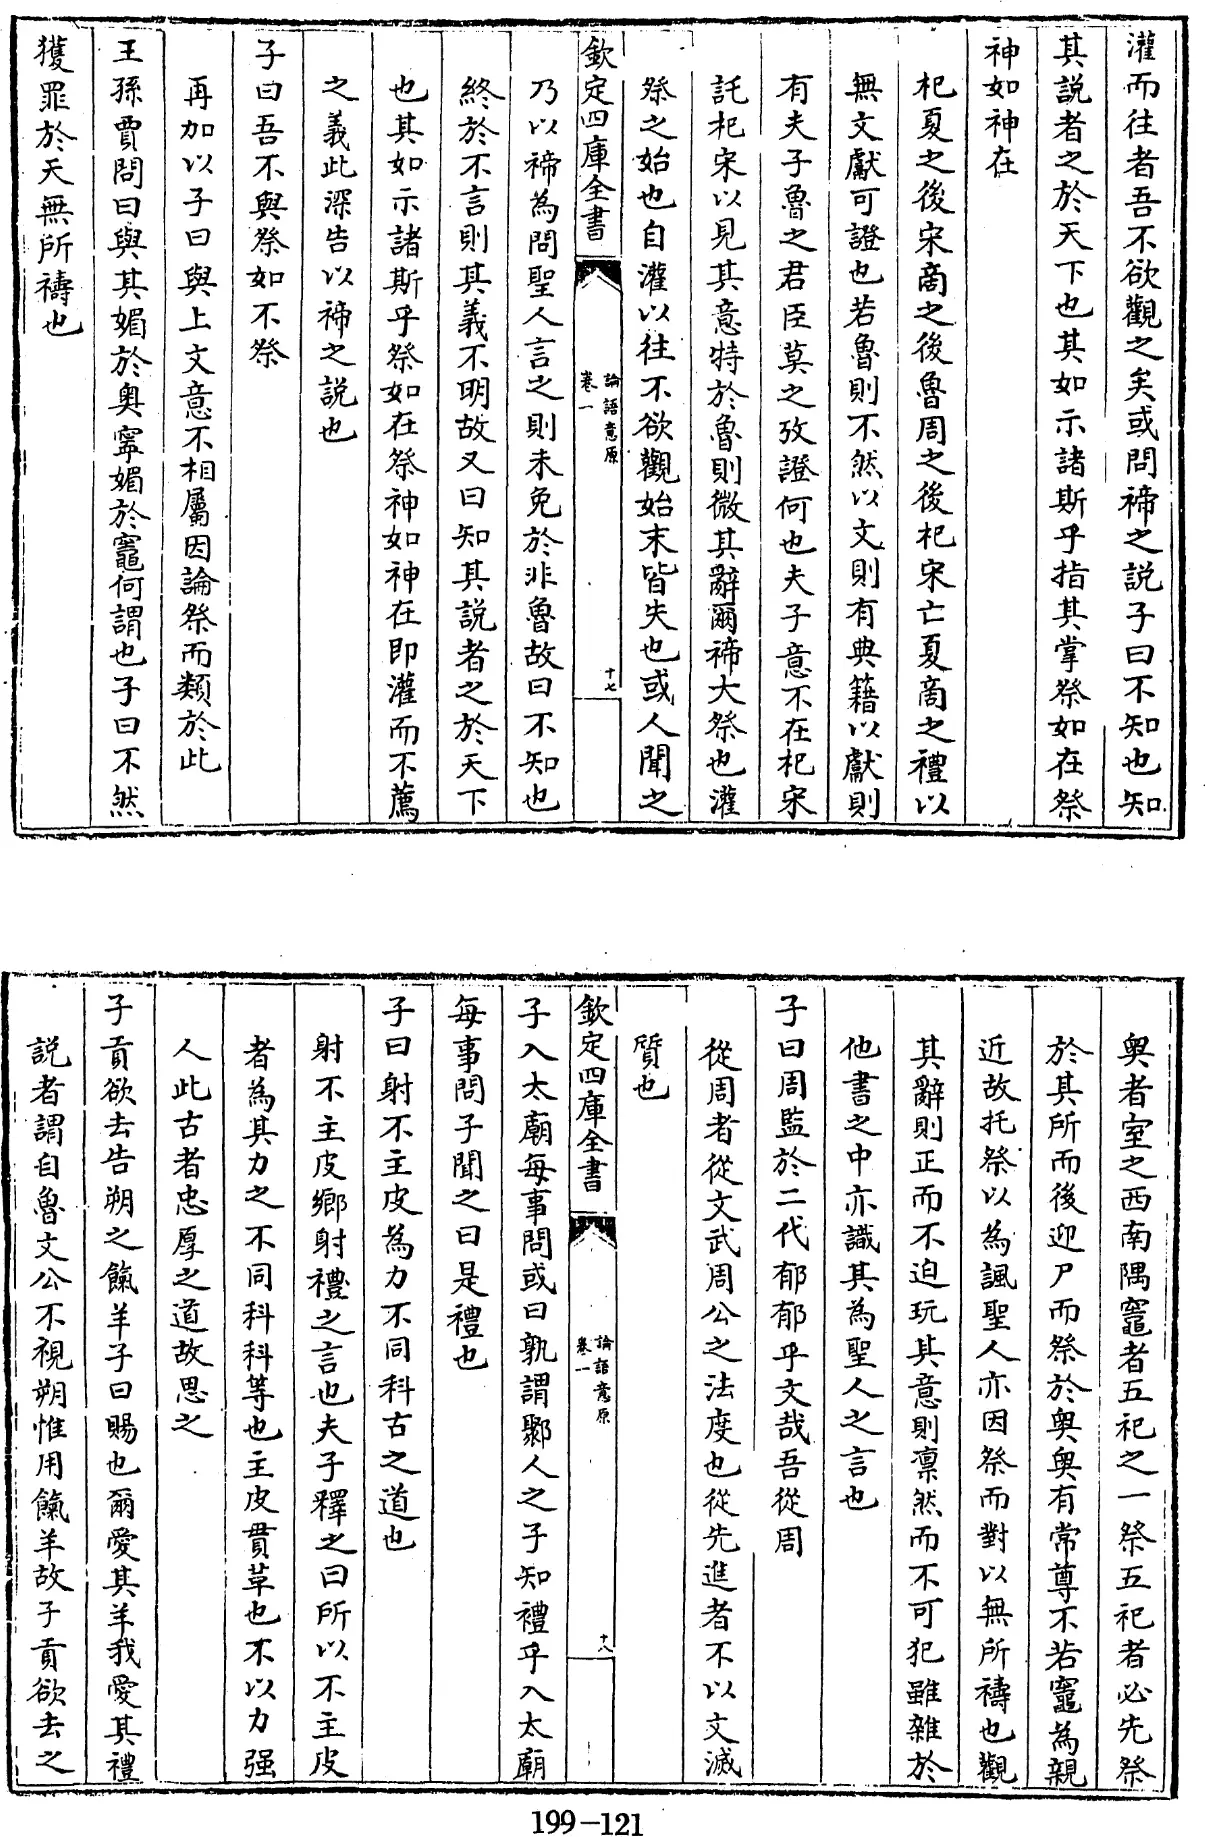 灌而往者吾不欲觀之矣或問禘之説子曰不知也知
其説者之於天下也其如示諸斯乎指其掌祭如在祭
神如神在
杞夏之後宋商之後魯周之後杞宋亡夏商之禮以
無文獻可證也若魯則不然以文則有典籍以獻則
有夫子魯之君臣莫之攷證何也夫子意不在杞宋
託杞宋以見其意特於魯則微其辭爾禘大祭也灌
祭之始也自灌以往不欲觀始末皆失也或人聞之
欽定四庫全書
論語意原
卷一
十七
乃以禘為問聖人言之則未免於非魯故曰不知也
終於不言則其義不明故又曰知其説者之於天下
也其如示諸斯乎祭如在祭神如神在即灌而不薦
之義此深告以禘之説也
子曰吾不與祭如不祭
再加以子曰與上文意不相屬因論祭而類於此
王孫賈問曰與其媚於奥寧媚於竈何謂也子曰不然
獲罪於天無所禱也
奥者室之西南隅竈者五祀之一祭五祀者必先祭
於其所而後迎尸而祭於奥奥有常尊不若竈為親
近故托祭以為諷聖人亦因祭而對以無所禱也觀
其辭則正而不迫玩其意則凛然而不可犯雖雜於
他書之中亦識其為聖人之言也
子曰周監於二代郁郁乎文哉吾從周
從周者從文武周公之法度也從先進者不以文滅
質也
欽定四庫全書
論語意原
卷一
十八
子入太廟每事問或曰孰謂鄹人之子知禮乎入太廟
每事問子聞之曰是禮也
子曰射不主皮為力不同科古之道也
射不主皮鄉射禮之言也夫子釋之曰所以不主皮
者為其力之不同科科等也主皮貫革也不以力强
人此古者忠厚之道故思之
子貢欲去告朔之餼羊子曰賜也爾愛其羊我愛其禮
説者謂自魯文公不視朔惟用餼羊故子貢欲去之
199-121